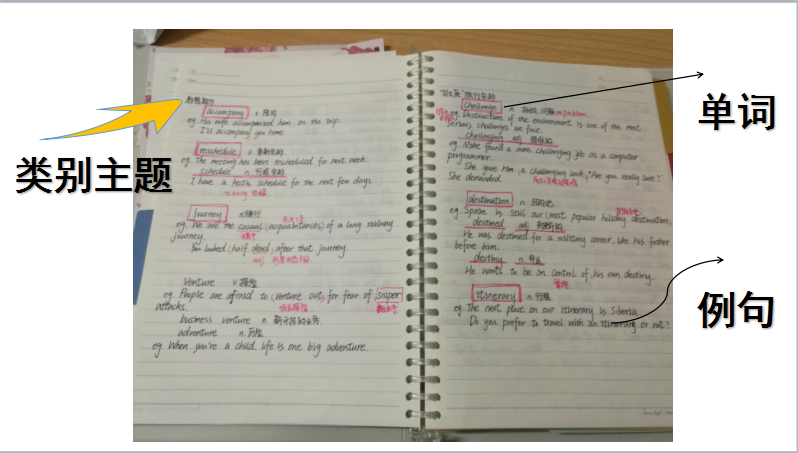 类别主题
单词
例句
accompany v 陪同
eg. His wife accompanied him on the trip.
I'll accompany you home.
reschedule v 重新安排
eg. The meeting has been rescheduled for next week
schedule n 行程安排
I have a hectic schedule for the next few days
journey n 旅行
eg. We are the casual (acquaintances) of a long railway
journey.
You looked (half dead) after that journey.
adj
venture v 探险
eg. People are afraid to (venture out) for fear of sniper
attacks.
外出探险 狙击手
business venture n
adventure n 历险
eg. When you're a child, life is one big adventure.
challenge n
problem
eg. Destruction of the environment is one of the most
serious challenges we face.
challenging adj
eg. Nake found a more challenging job as a computer
programmer.
She gave him (a challenging look). "Are you really sure?"
She demanded.
destination n 目的地
eg. Spain is still our (most popular holiday destination)
destined adj
He was destined for a military career, like his father
before him.
destiny n 命运
He wants to be in control of his own destiny.
itinerary n 行程
eg. The next place on our itinerary is Siberia
Do you prefer to travel with an itinerary or not?